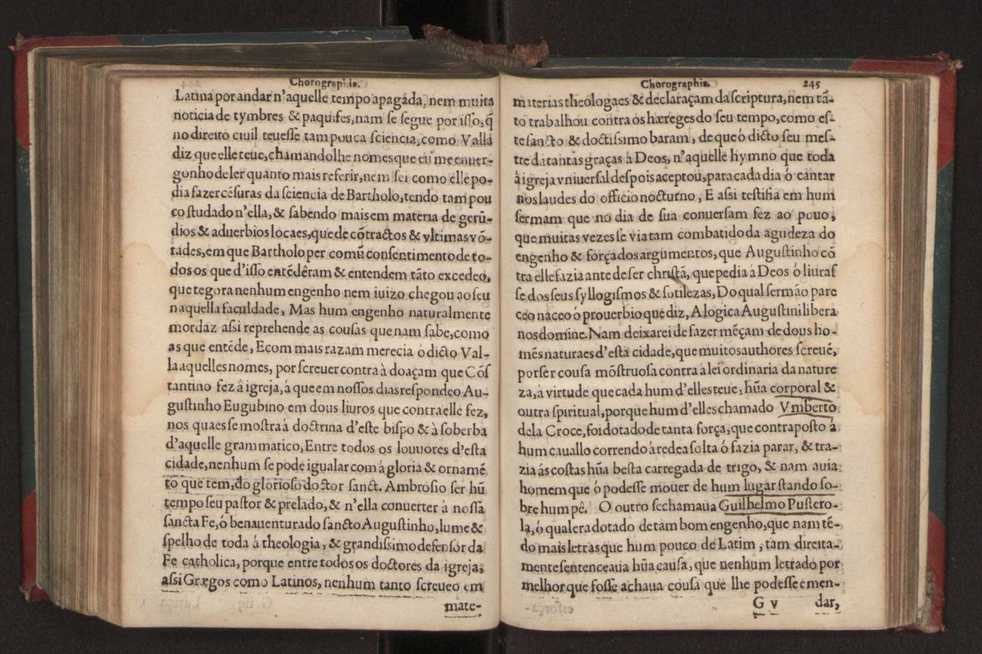 Chorographia.
Latina por andar n'aquelle tempo apagàda, nem muita
noticia de tymbres & paquifes, nam se segue por isso, q̃
no direito ciuil teuesse tam pouca sciencia, como Valla
diz que elle teue, chamandolhe nomes que eu me enuer-
gonho de ler quanto mais referir, nem sei como elle po-
dia fazer césuras da sciencia de Bartholo, tendo tam pou
co studado n'ella, & sabendo mais em materia de gerũ-
dios & aduerbios locaes, que de cõtractos & vltimas võ-
tades, em que Bartholo per comũ consentimento de to-
dos os que d'isso entẽdêram & entendem tãto excedeo,
que tegora nenhum engenho nem iuizo chegou ao seu
naquella faculdade, Mas hum engenho naturalmente
mordaz assi reprehende as cousas que nam sabe, como
as que entẽde, E com mais razam merecia ó dicto Val-
la aquelles nomes, por screuer contra à doaçam que Cõs
tantino fez â igreja, á que em nossos dias respondeo Au-
gustinho Eugubino em dous liuros que contra elle fez,
nos quaes se mostra à doctrina d'este bispo & à soberba
d'aquelle grammatico, Entre todos os louuores d'esta
cidade, nenhum se pode igualar com à gloria & ornamẽ
to que tem, do glorioso doctor sanct. Ambrosio ser hũ
tempo seu pastor & prelado, & n'ella conuerter à nossa
sancta Fe, ó benauenturado sancto Augustinho, lume &
spelho de toda à theologia, & grandissimo defensor da
Fe catholica, porque entre todos os doctores da igreja,
assi Grægos como Latinos, nenhum tanto screueo em
mate-
Chorographia. 245
materias theólogaes & declaraçam da scriptura, nem tã-
to trabalhou contra os hæreges do seu tempo, como es-
te sancto & doctissimo baram, de que ó dicto seu mes-
tre dà tantas graças à Deos, n'aquelle hymno que toda
à igreja vniuersal despois aceptou, para cada dia ó cantar
nos laudes do officio nocturno, E assi testifia em hum
sermam que no dia de sua conuersam fez ao pouo,
que muitas vezes se via tam combatido da agudeza do
engenho & forçados argumentos, que Augustinho cõ
tra elle fazia ante de ser christã, que pedia à Deos ó liuras
se dos seus syllogismos & sutilezas, Do qual sermão pare
ceo nàceo ò prouerbio que diz, A logica Augustini libera
nos domine. Nam deixarei de fazer mẽçam de dous ho-
mẽs naturaes d'esta cidade, que muitos authores screuẽ,
por ser cousa mõstruosa contra à lei ordinaria da nature
za, à virtude que cada hum d'elles teue, hũa corporal &
outra spiritual, porque hum d'elles chamado Vmberto
dela Croce, foi dotado de tanta força, que contraposto á
hum cauallo correndo à redea solta ó fazia parar, & tra-
zia ás costas hũa besta carregada de trigo, & nam auia
homem que ó podesse mouer de hum lugar stando so-
bre hum pê. O outro se chamaua Guilhelmo Pustero-
la, ó qual era dotado de tam bom engenho, que nam tẽ-
do mais letras que hum pouco de Latim, tam direita-
mente sentenceaua hũa causa, que nenhum letrado por
melhor que fosse achaua cousa que lhe podesse emen-
G v dar,